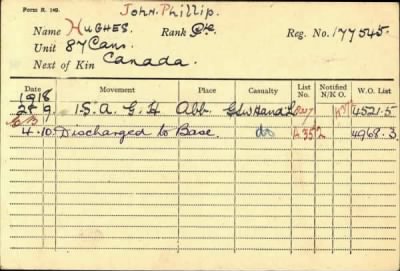 Form R. 149.
John Phillip.
Name HUGHES. Rank Pte. Reg. No. 177545.
Unit 87 Cans.
Next of Kin Canada.
Date Movement Place Casualty List No. Notified N/K O. W.O. List
1918
28 9. 1. S. A. G. H Abb. GSW Hand L 4521.5
4.10. Discharged to Base. do 4352 4968.3